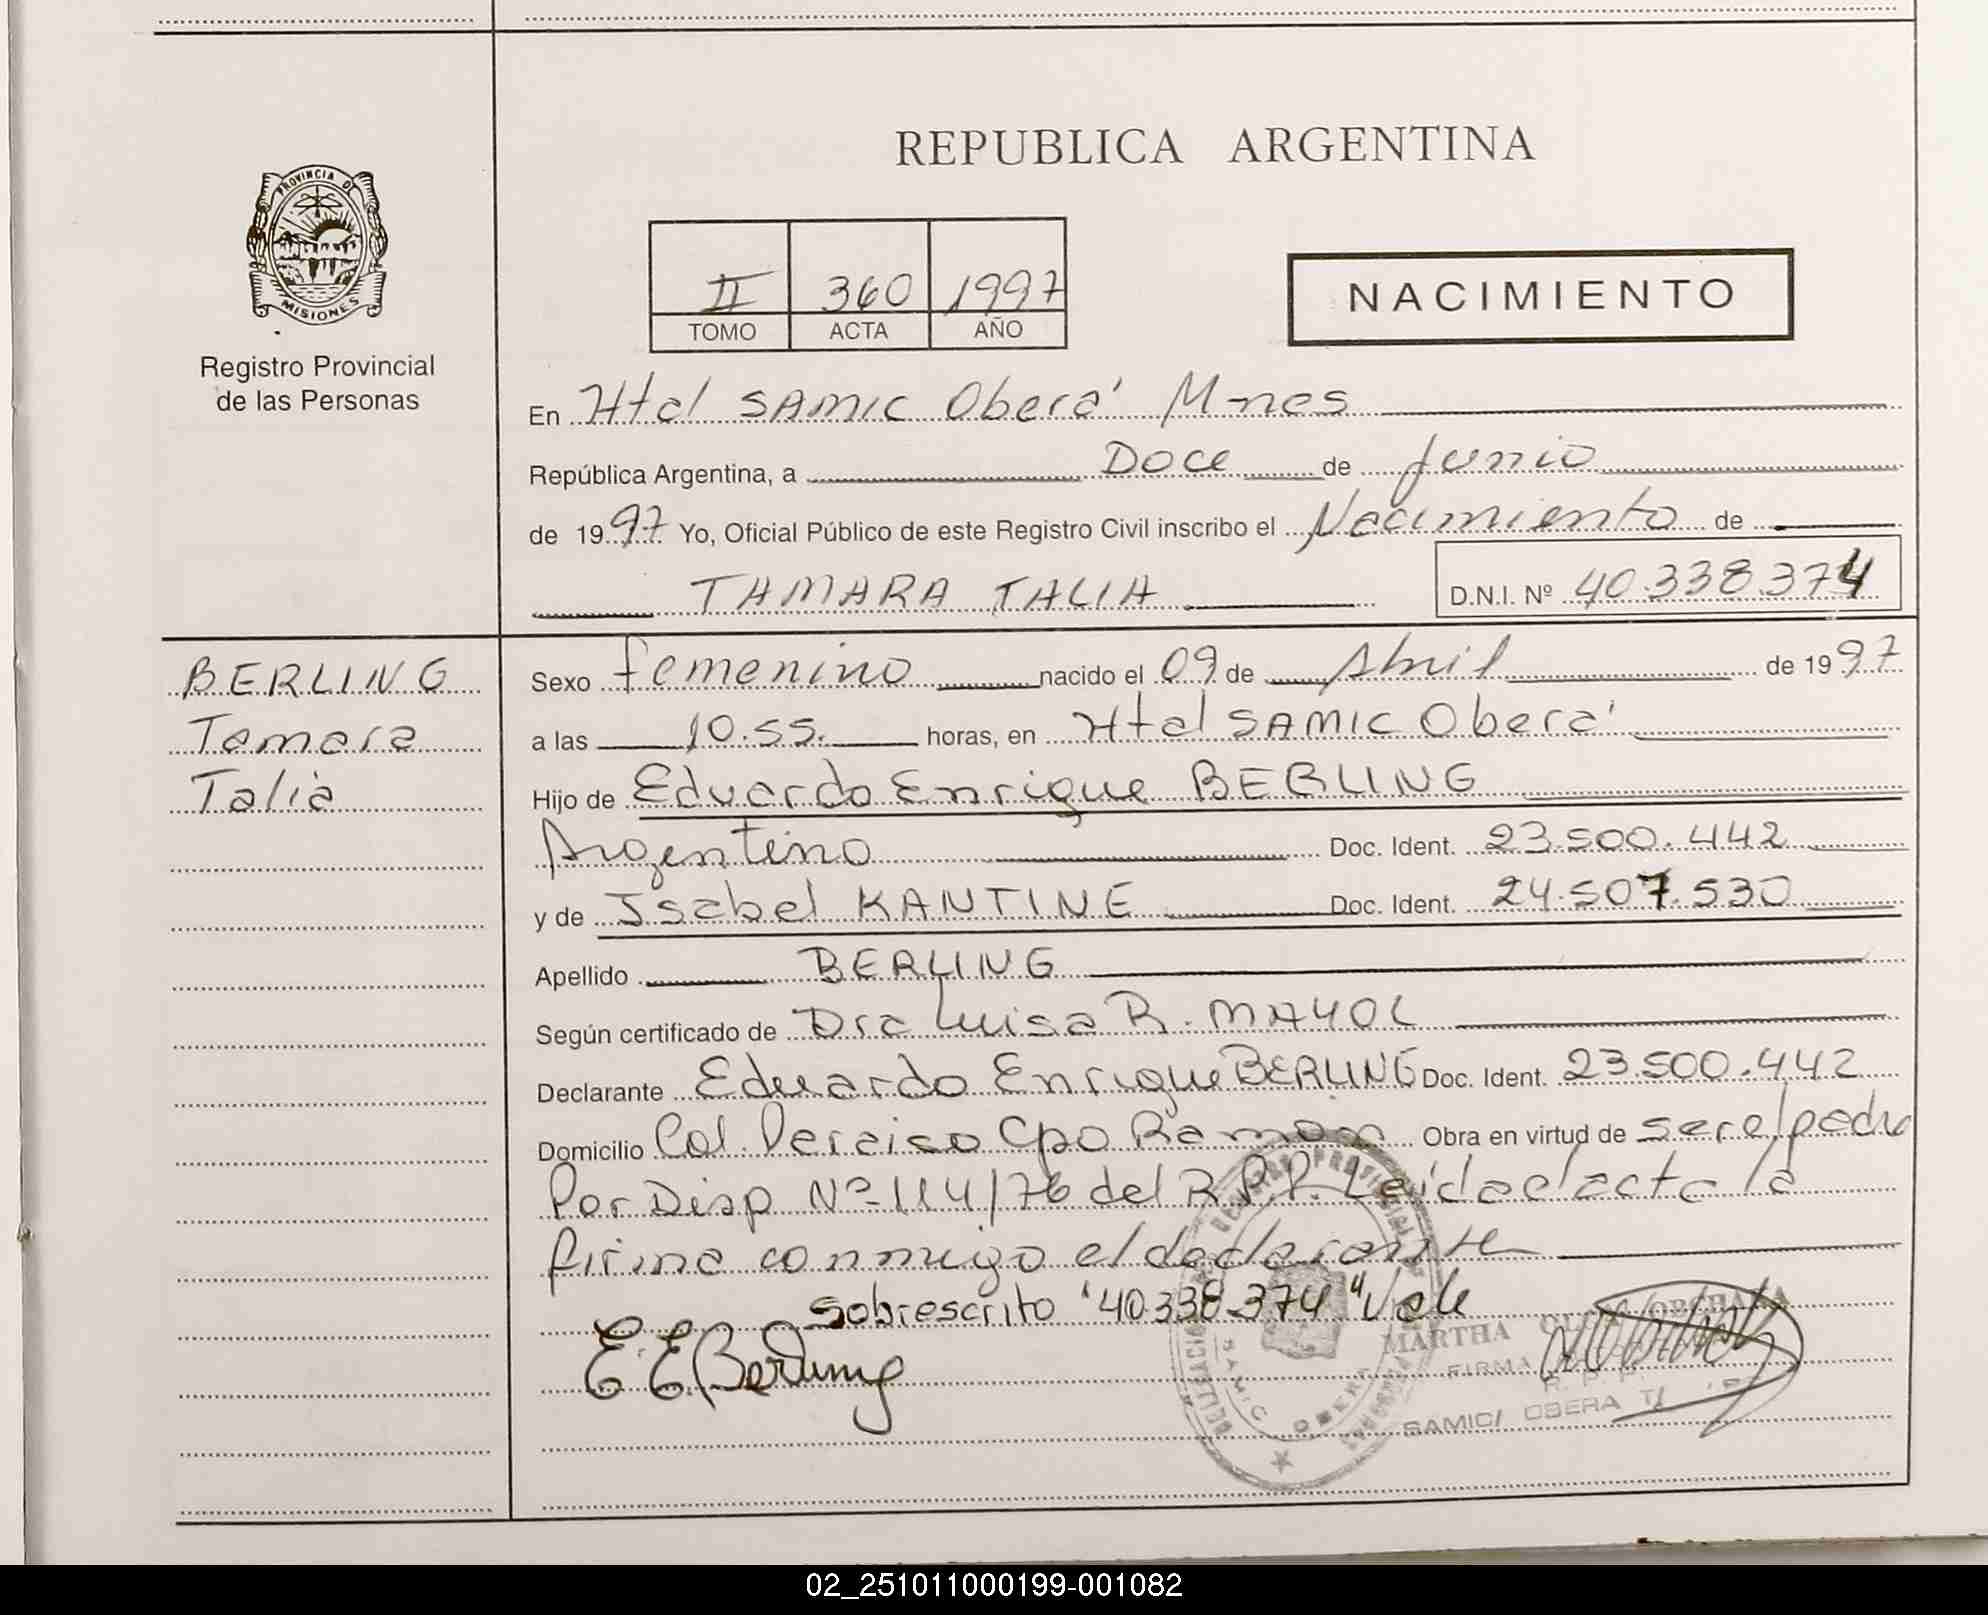 PROVINCIA DE
MISIONES
Registro Provincial
de las Personas
REPUBLICA ARGENTINA
II 360 1997
TOMO ACTA AÑO
NACIMIENTO
En Htal SAMIC Oberá M-nes
República Argentina, a Doce de Junio
de 1997 Yo, Oficial Público de este Registro Civil inscribo el Nacimiento de
TAMARA TALIA
D.N.I. Nº 40.338.374
BERLING
Tamara
Talia
Sexo femenino nacido el 09 de Abril de 1997
a las 10.55. horas, en Htal SAMIC Oberá
Hijo de Eduardo Enrique BERLING
Argentino Doc. Ident. 23.500.442
y de Isabel KANTINE Doc. Ident. 24.507.530
Apellido BERLING
Según certificado de Dra Luisa R. MAYOL
Declarante Eduardo Enrique BERLING Doc. Ident. 23.500.442
Domicilio Col. Paraiso Cpo Ramon Obra en virtud de ser el padre
Por Disp Nº 114/76 del R.P.P. Leida el acta la
firma conmigo el declarante
Sobrescrito "40.338.374" Vale
E. E. Berling
MARTHA
FIRMA
R. P. P.
SAMIC/ OBERA
SAMIC OBERA
02_251011000199-001082